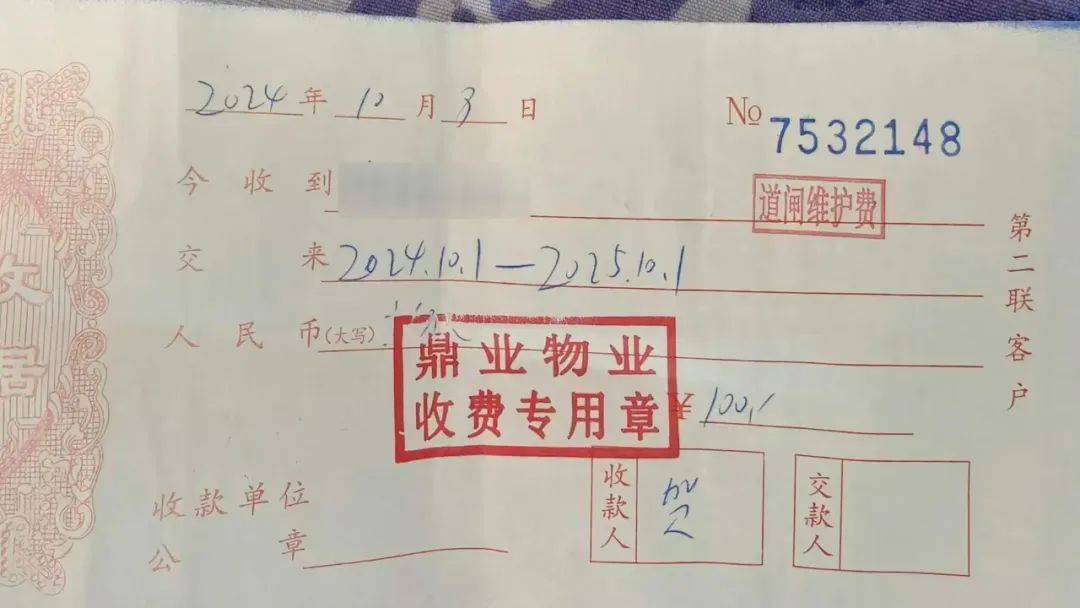 2024年10月3日
No 7532148
今收到
道闸维护费
交来2024.10.1—2025.10.1
人民币(大写)
鼎业物业
收费专用章
100,
收款单位
公章
收款人
贺
交款人
第二联客户